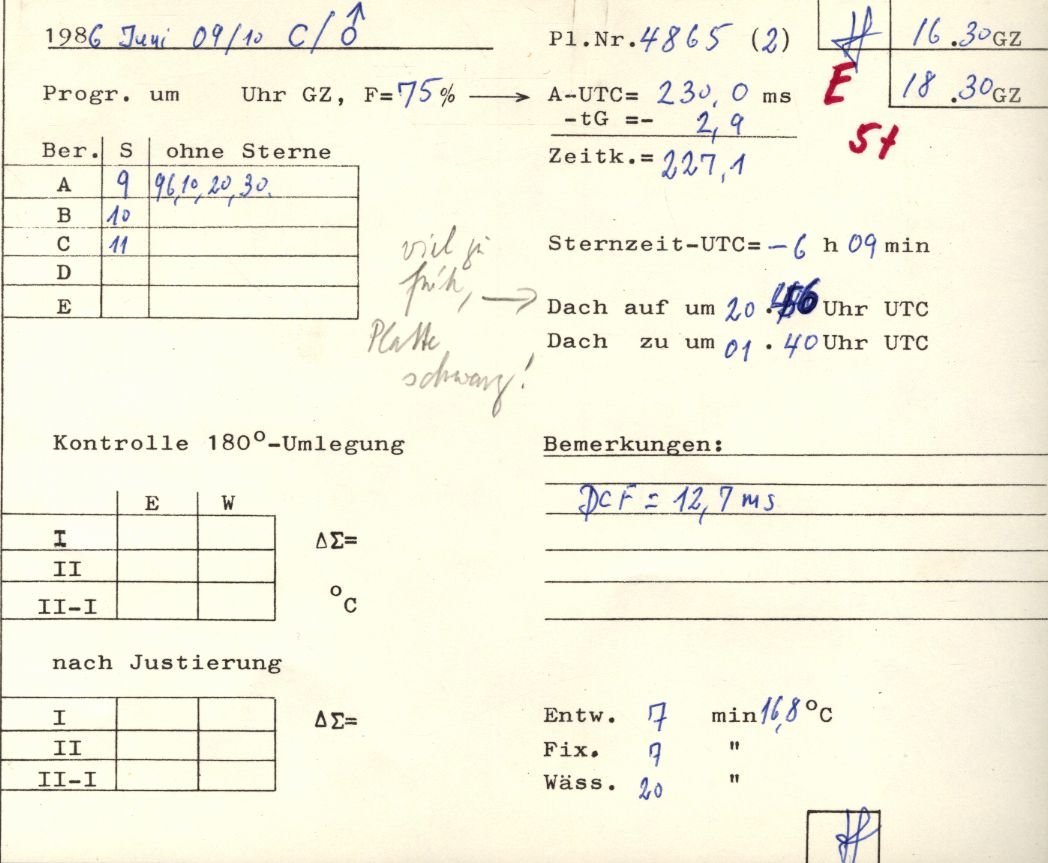 1986 Juni 09/10 C/♂
Pl.Nr. 4865 (2)
16.30 GZ
18.30 GZ
E
St
Progr. um Uhr GZ, F=75% → A-UTC= 230,0 ms
-tG =- 2,9
Zeitk.= 227,1
Ber. S ohne Sterne
A 9 96,10,20,30.
B 10
C 11
D
E
Sternzeit-UTC= -6 h 09 min
viel zu
früh, →
Platte
schwarz!
Dach auf um 20. Uhr UTC
Dach zu um 01.40 Uhr UTC
Kontrolle 180°-Umlegung
E W
I ΔΣ=
II
II-I °C
Bemerkungen:
DCF = 12,7 ms
nach Justierung
I ΔΣ=
II
II-I
Entw. 7 min 16,8 °C
Fix. 7 "
Wäss. 20 "